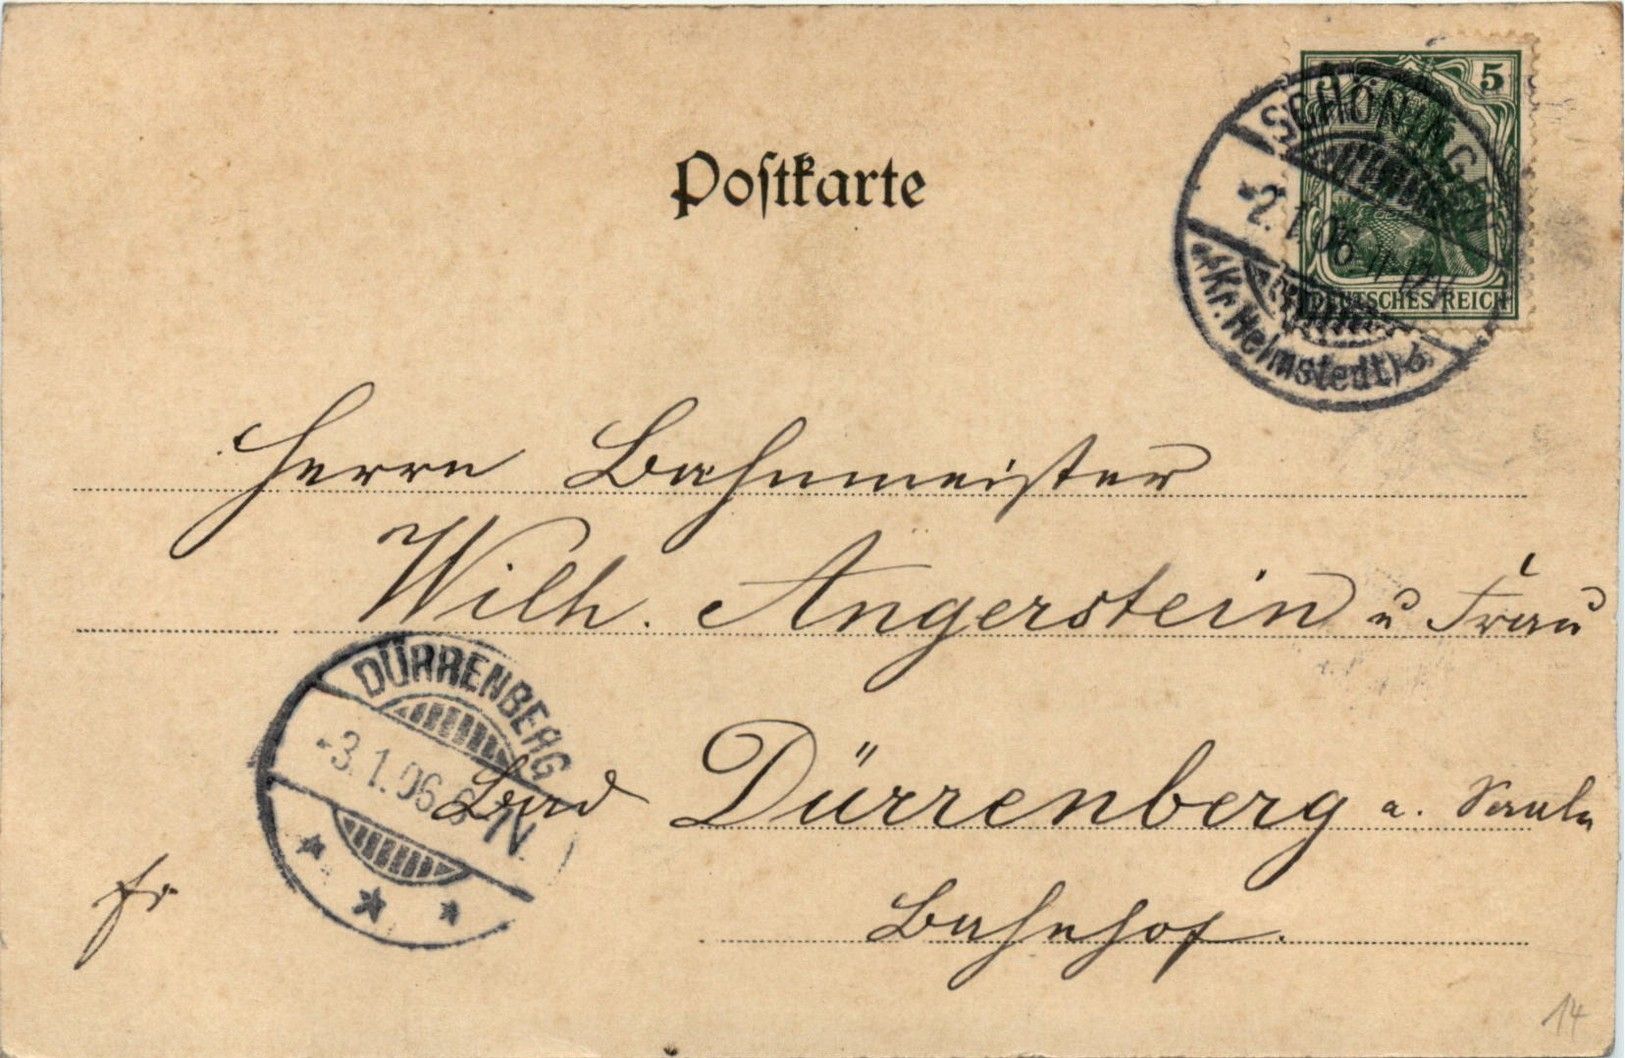 Postkarte
5
SCHÖNINGEN
-2.1.06
(Kr. Helmstedt) b.
DEUTSCHES REICH
Herrn Bahnmeister
Wilh. Angerstein u Frau
DÜRRENBERG
-3.1.06 N.
Bad Dürrenberg a. Saale
fr
Bahnhof.
14